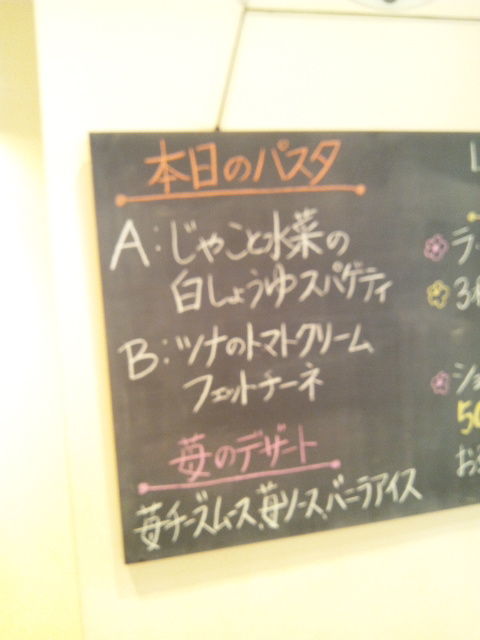 本日のパスタ
A:じゃこと水菜の
白しょうゆスパゲティ
B:ツナのトマトクリーム
フェットチーネ
苺のデザート
苺チーズムース、苺ソース、バニラアイス